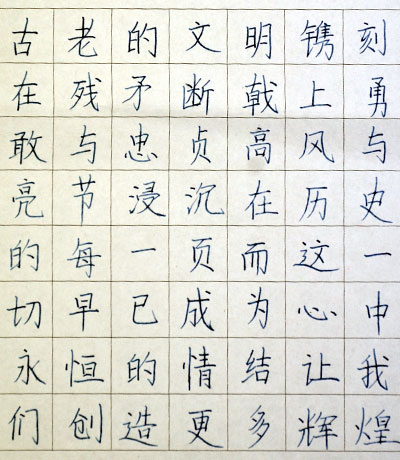 古老的文明镌刻
在残矛断戟上勇
敢与忠贞高风与
亮节浸沉在历史
的每一页而这一
切早已成为心中
永恒的情结让我
们创造更多辉煌